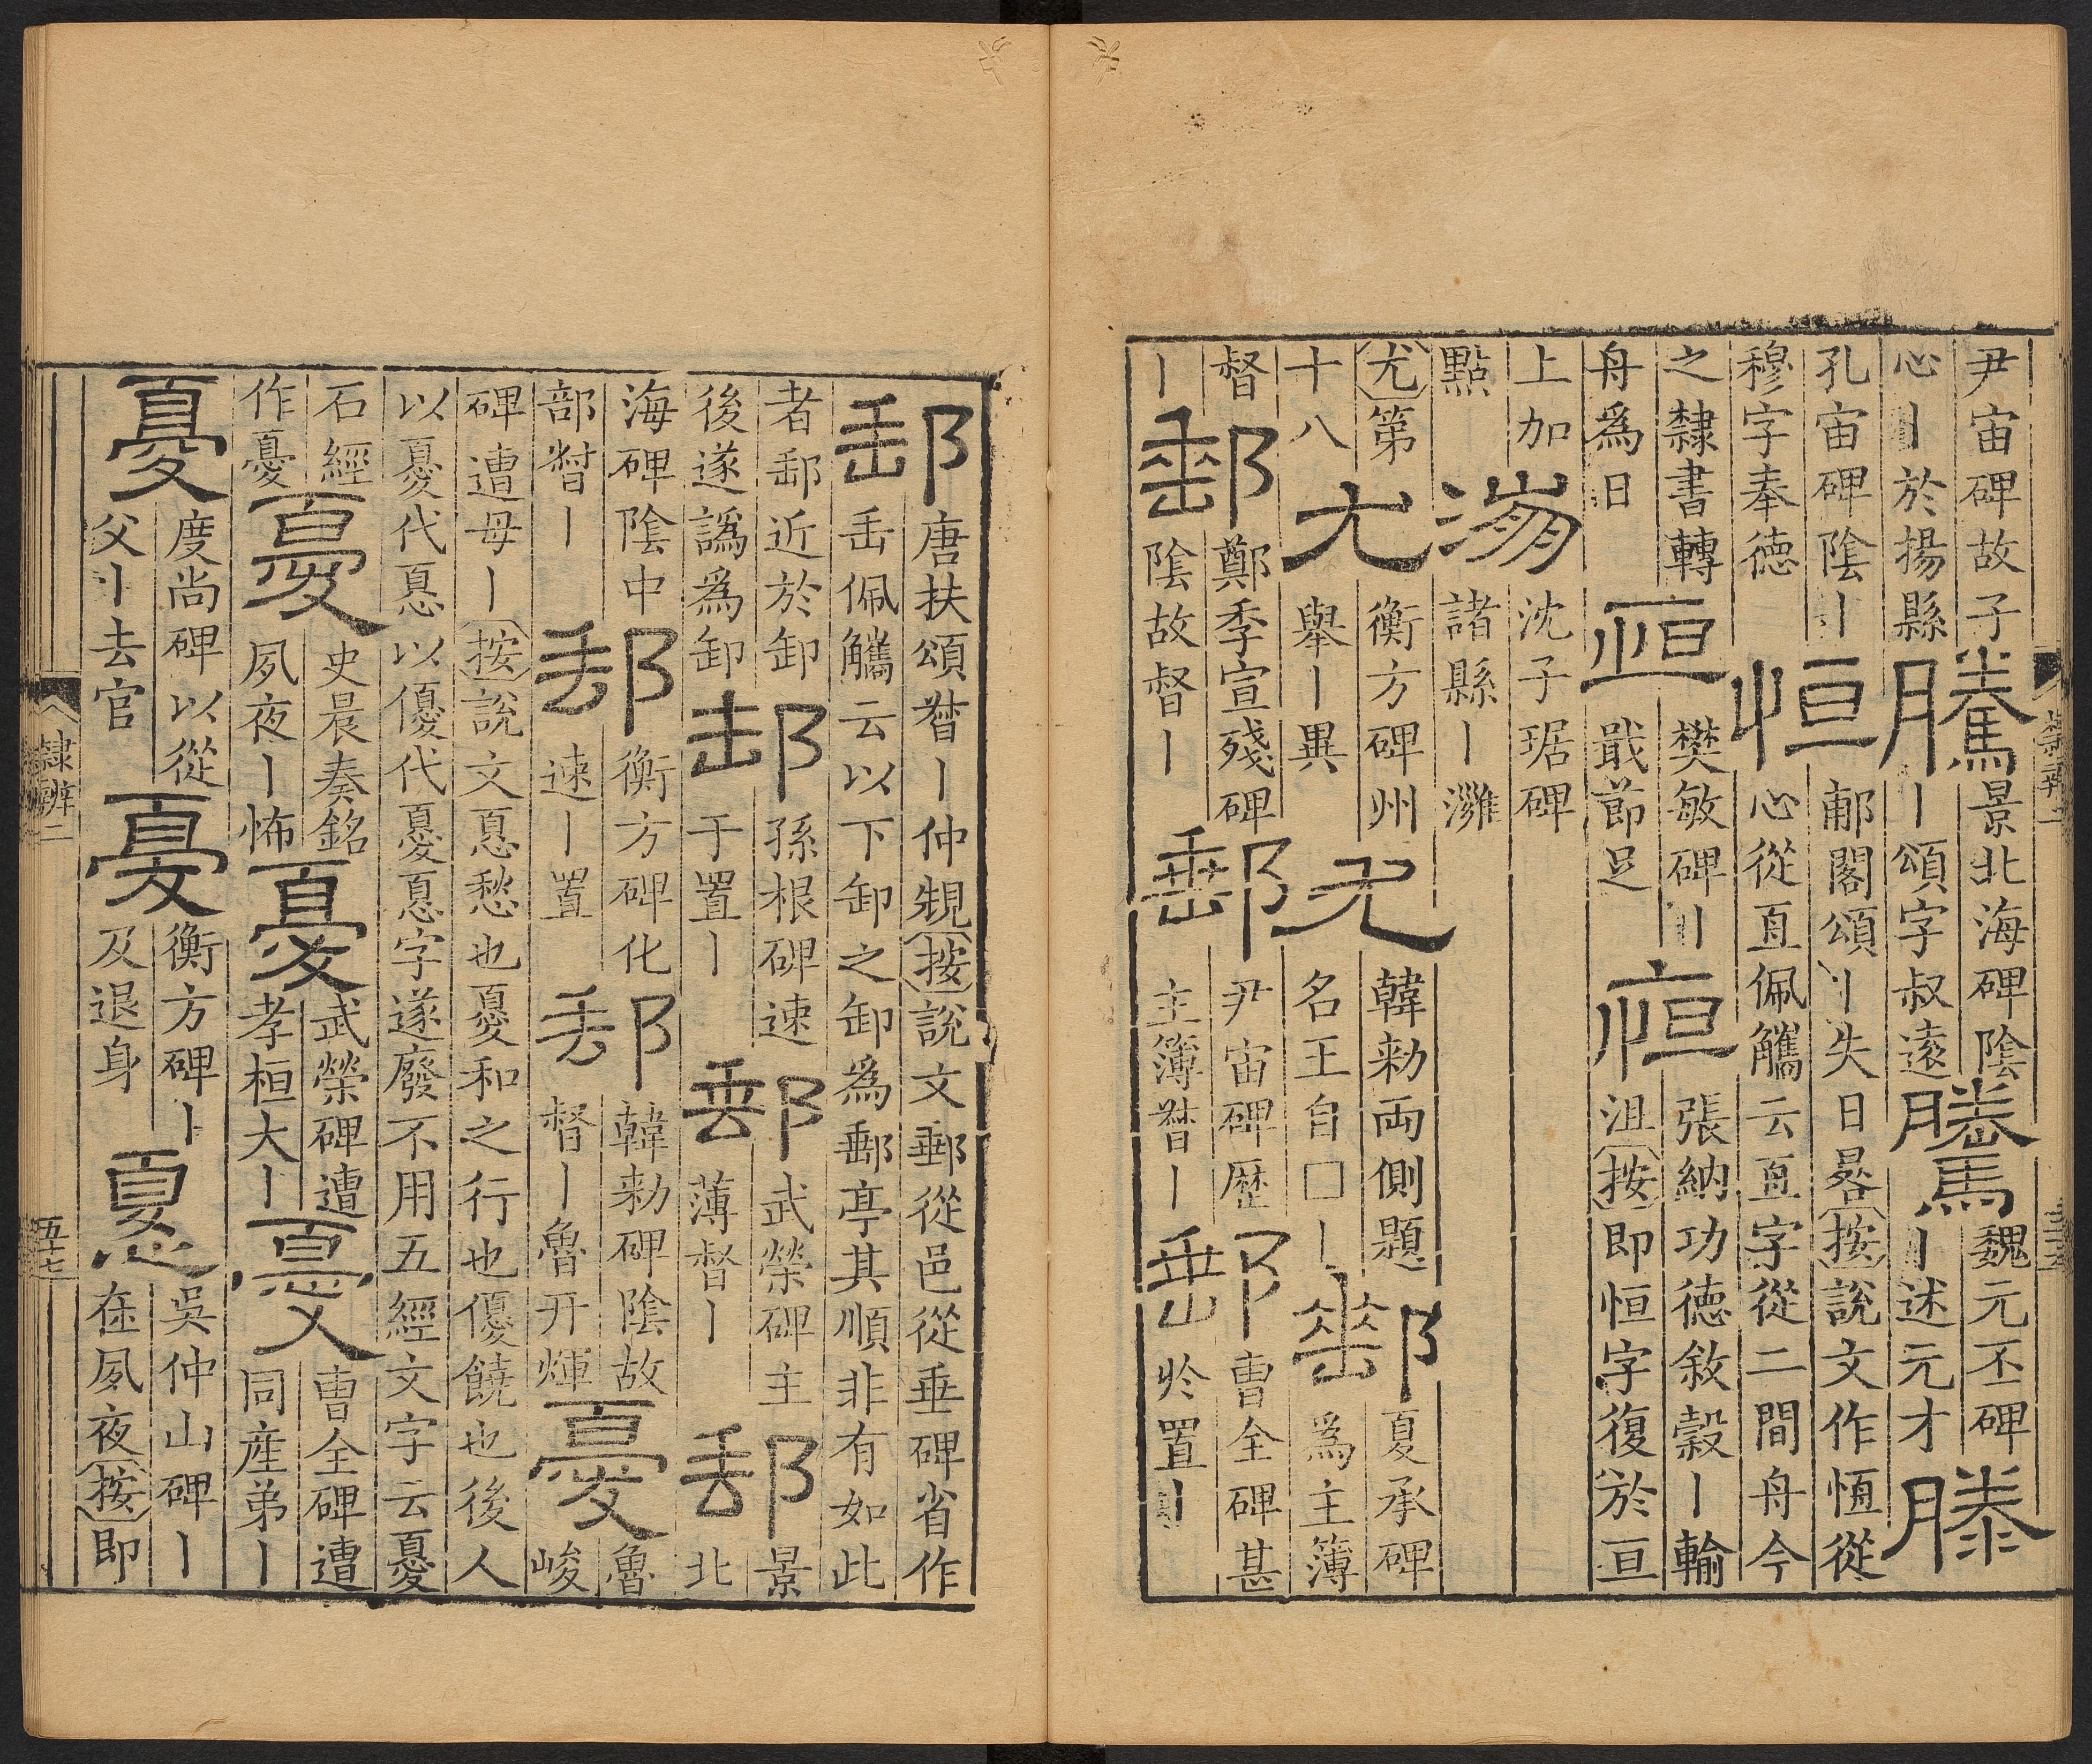 尹宙碑故子
心丨於揚縣
騰
景北海碑陰
丨頌字叔遠
騰
魏元丕碑
丨述元才
滕
孔宙碑陰丨
穆字奉德
恒
郙閣頌丨失日晷按說文作恆從
心從亙佩觿云亙字從二間舟今
之隸書轉
舟爲日
恒
樊敏碑丨
戢節足
恒
張納功德敘穀丨輸
沮按即恒字復於亘
上加
點
沈子琚碑
諸縣丨灘
尤第
十八
尤
衡方碑州
舉丨異
尤
韓勑兩側題
名王自□丨
郵
夏承碑
爲主簿
督
丨
郵
鄭季宣殘碑
陰故督丨
郵
尹宙碑歷
主簿督丨
郵
曹全碑甚
於置丨
隸辨二
郵
唐扶頌督丨仲䂓按說文郵從邑從垂碑省作
垂佩觿云以下卸之卸爲郵亭其順非有如此
者郵近於卸
後遂譌爲卸
郵
孫根碑速
于置丨
郵
武榮碑主
薄督丨
郵
景
北
海碑陰中
部督丨
郵
衡方碑化
速丨置
郵
韓勑碑陰故
督丨魯开煇
憂
魯
峻
碑遭母丨按說文㥑愁也憂和之行也優饒也後人
以憂代㥑以優代憂㥑字遂廢不用五經文字云憂
石經
作憂
憂
史晨奏銘
夙夜丨怖
憂
武榮碑遭
孝桓大丨
憂
曹全碑遭
同産弟丨
憂
度尚碑以從
父丨去官
憂
衡方碑丨
及退身
憂
吳仲山碑丨
在夙夜按即
隸辨二
五十七